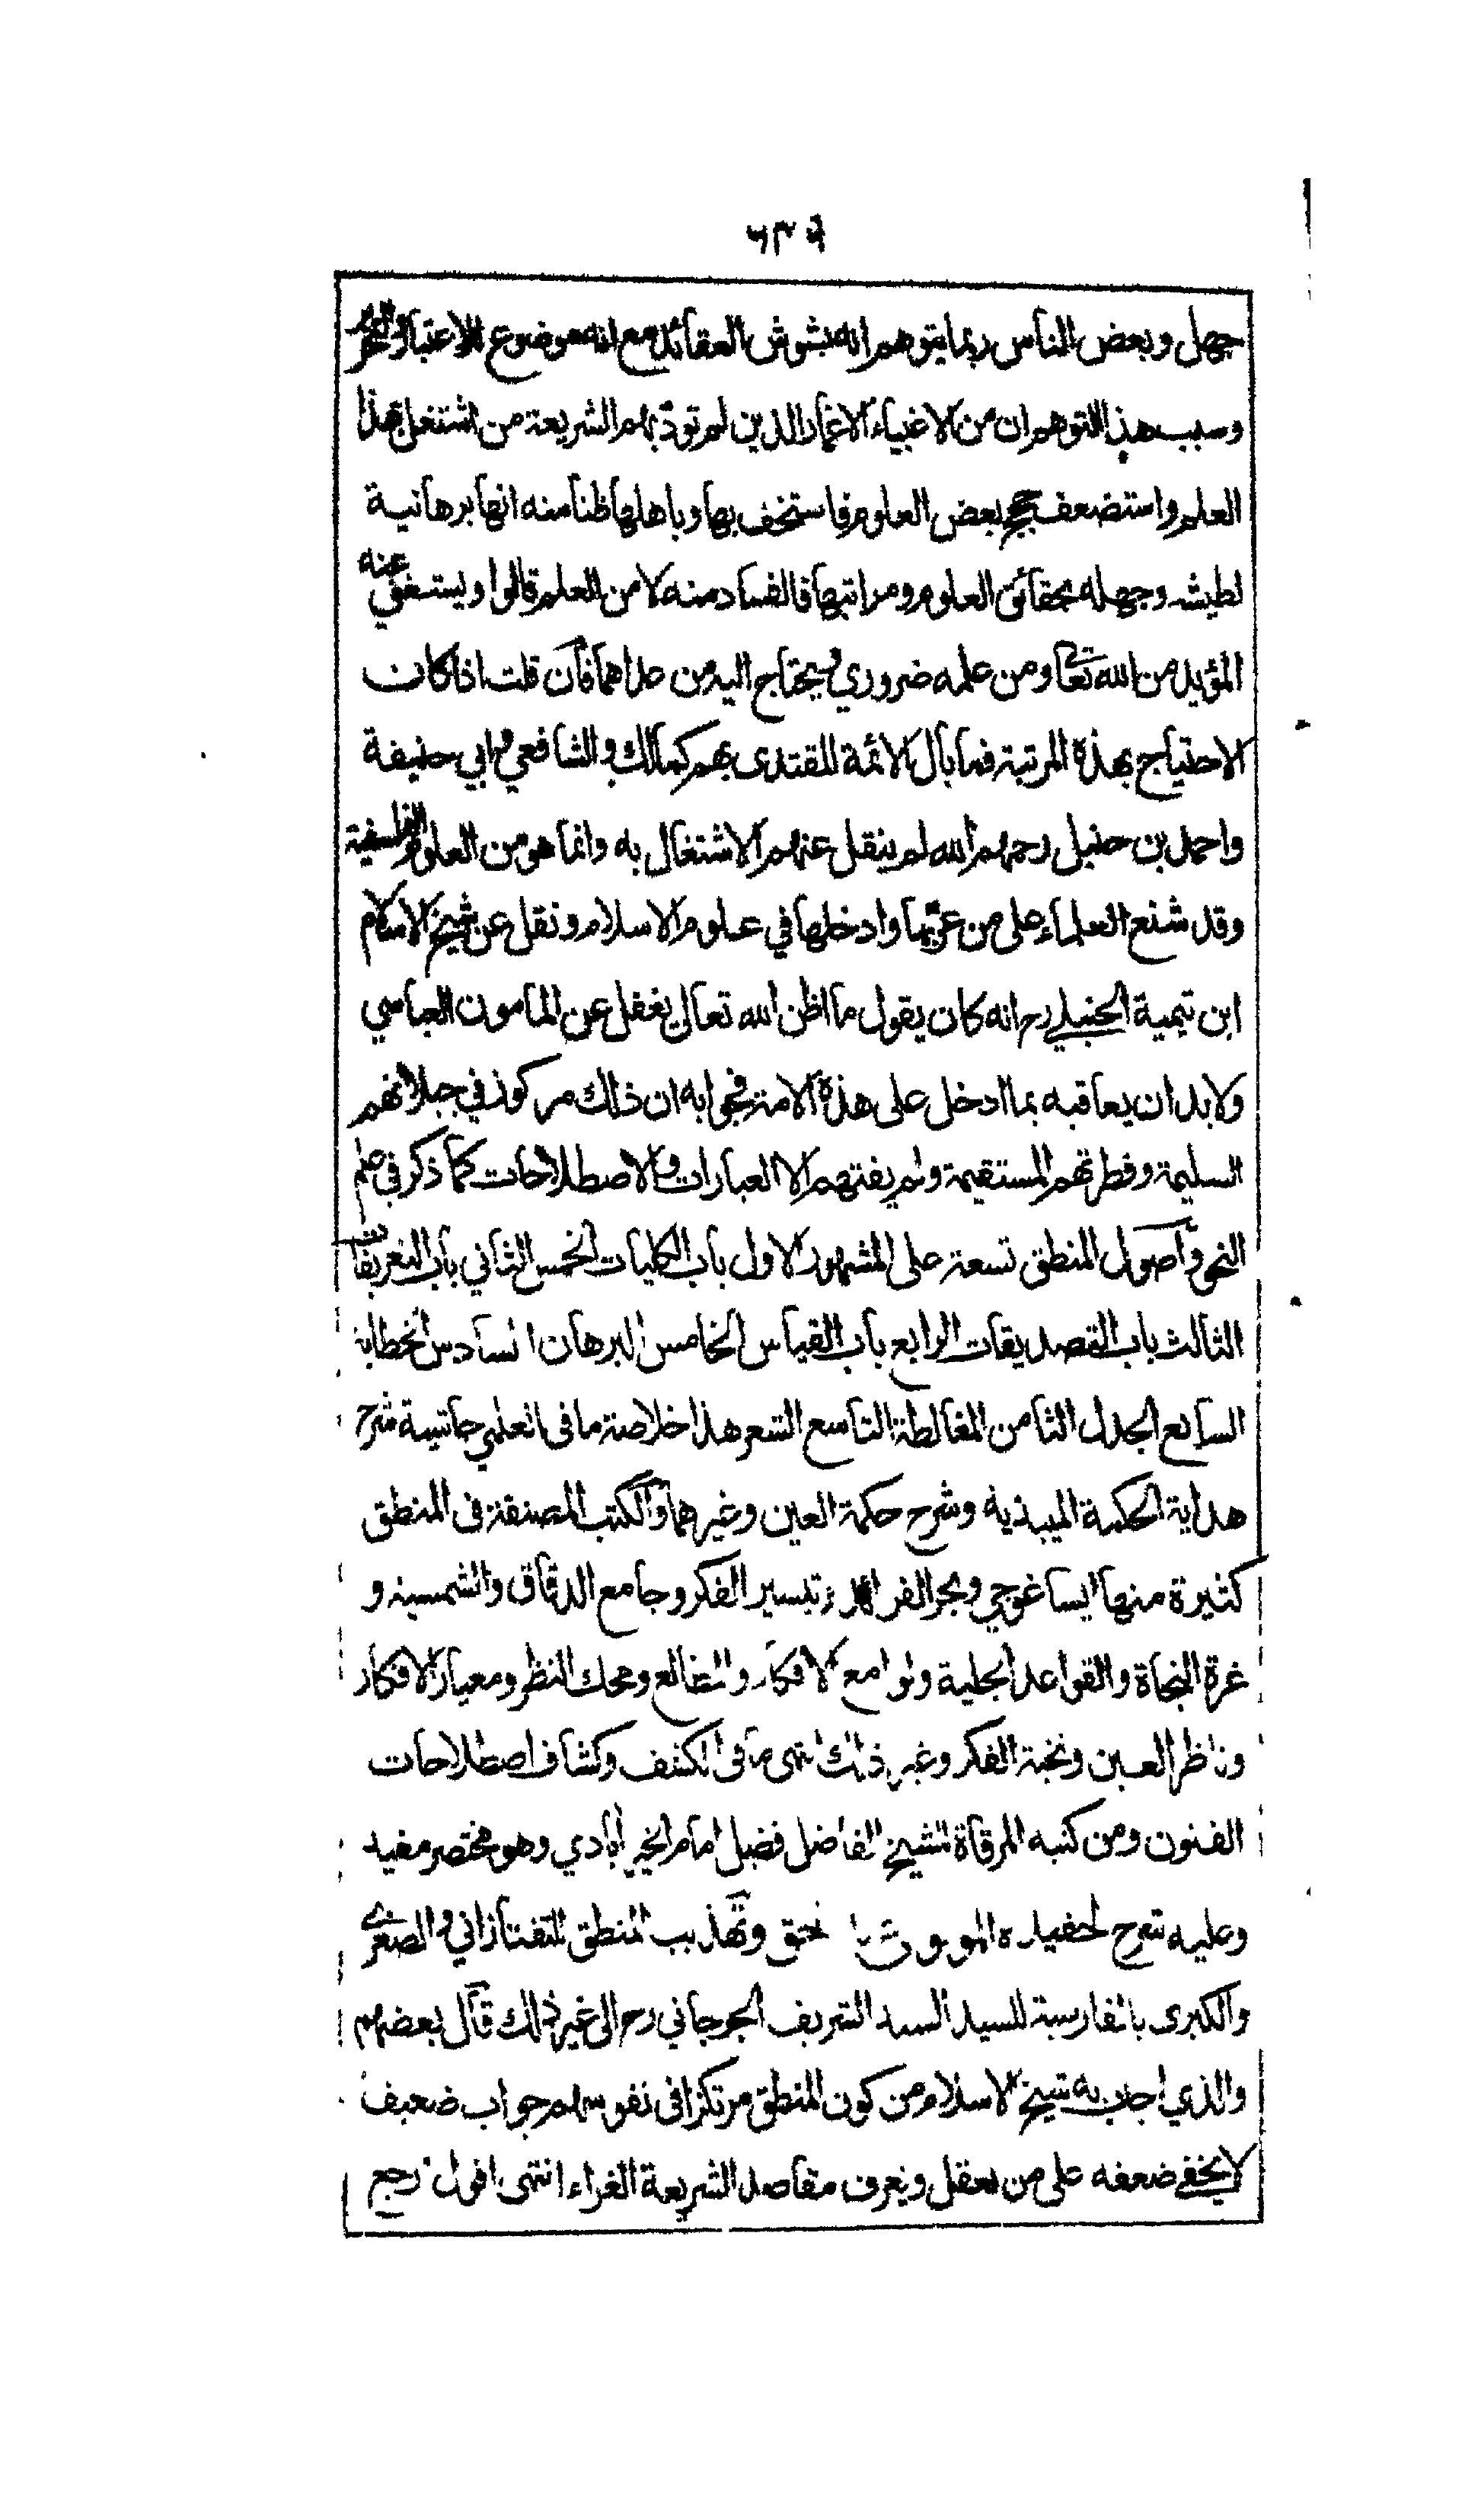 جهل وبعض الناس ربما يتوهم انه يشوش العقائد مع انه موضوع للاعتبار والتحرير
وسبب هذا التوهم ان من الاغبياء الاغمار الذين لم تؤدبهم الشريعة من اشتغل بهذا
العلم واستضعف حجج بعض العلوم فاستخف بها وباهلها ظنا منه انها برهانية
لطيشه وجهله بحقائق العلوم ومراتبها فالفساد منه لا من العلم قالوا ويستغني عنه
المؤيد من الله تعالى ومن علمه ضروري ويحتاج اليه من عداهما فان قلت اذا كان
الاحتياج بهذه المرتبة فما بال الائمة المقتدى بهم كمالك والشافعي وابي حنيفة
واحمد بن حنبل رحمهم الله لم ينقل عنهم الاشتغال به وانما هو من العلوم الفلسفية
وقد شنع العلماء على من عربها وادخلها في علوم الاسلام ونقل عن شيخ الاسلام
ابن تيمية الحنبلي رح انه كان يقول ما اظن الله تعالى يغفل عن المامون العباسي
ولا بد ان يعاقبه بما ادخل على هذه الامة فجوابه ان ذلك مركوز في جبلاتهم
السليمة وفطرتهم المستقيمة ولم يفتهم الا العبارات والاصطلاحات كما ذكر في علم
النحو واصول المنطق تسعة على المشهور الاول باب الكليات الخمس الثاني باب التعريفات
الثالث باب التصديقات الرابع باب القياس الخامس البرهان السادس الخطابة
السابع الجدل الثامن المغالطة التاسع الشعر هذا خلاصة ما في العلمي حاشية شرح
هداية الحكمة الميبذية وشرح حكمة العين وغيرهما والكتب المصنفة في المنطق
كثيرة منها ايساغوجي وبحر الفرائد وتيسير الفكر وجامع الدقاق والشمسية و
غرة النجاة والقواعد الجلية ولوامع الافكار والمطالع ومحك النظر ومعيار الافكار
وناظر العين ونخبة الفكر وغير ذلك انتهى ما في الكشف وكشاف اصطلاحات
الفنون ومن كتبه المرقاة للشيخ الفاضل فضل امام الخير ابادي وهو مختصر مفيد
وعليه شرح لحفيده المولوي لحق وتهذيب المنطق للتفتازاني والصغرى
والكبرى بالفارسية للسيد السند الشريف الجرجاني رح الى غير ذلك قال بعضهم
والذي اجاب به شيخ الاسلام من كون المنطق مرتكزا في نفوسهم جواب ضعيف
لا يخفى ضعفه على من يعقل ويعرف مقاصد الشريعة الغراء انتهى اقول رجح